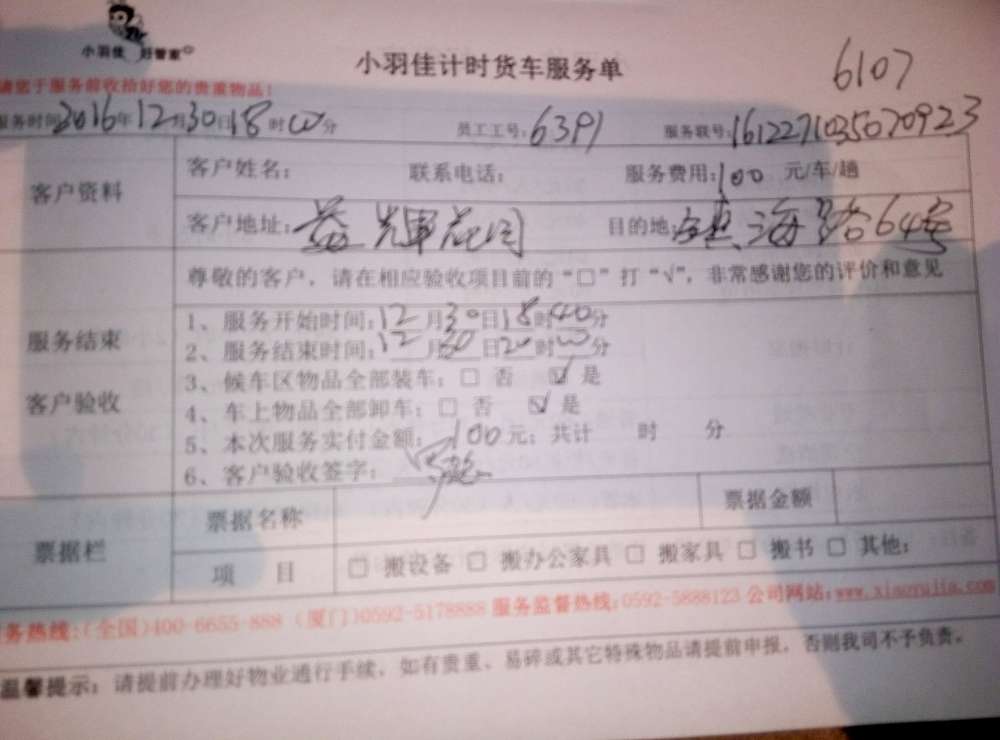 小羽佳 好管家
小羽佳计时货车服务单
6107
请您于服务前收拾好您的贵重物品!
服务时间2016年12月30日18时00分 员工工号:6391 服务联号:1612271035070923
客户资料
客户姓名: 联系电话: 服务费用:100 元/车/趟
客户地址:益輝花园 目的地: 海路64号
尊敬的客户，请在相应验收项目前的“□”打“√”，非常感谢您的评价和意见
服务结束
客户验收
1、服务开始时间:12月30日18时40分
2、服务结束时间:12月30日20时00分
3、候车区物品全部装车:□ 否 ☑ 是
4、车上物品全部卸车:□ 否 ☑ 是
5、本次服务实付金额:100元;共计 时 分
6、客户验收签字:
票据栏
票据名称 票据金额
项 目 □ 搬设备 □ 搬办公家具 □ 搬家具 □ 搬书 □ 其他:
服务热线:(全国)400-6655-888 (厦门)0592-5178888 服务监督热线:0592-5888123 公司网站:www.xiaoyujia.com
温馨提示: 请提前办理好物业通行手续，如有贵重、易碎或其它特殊物品请提前申报，否则我司不予负责。